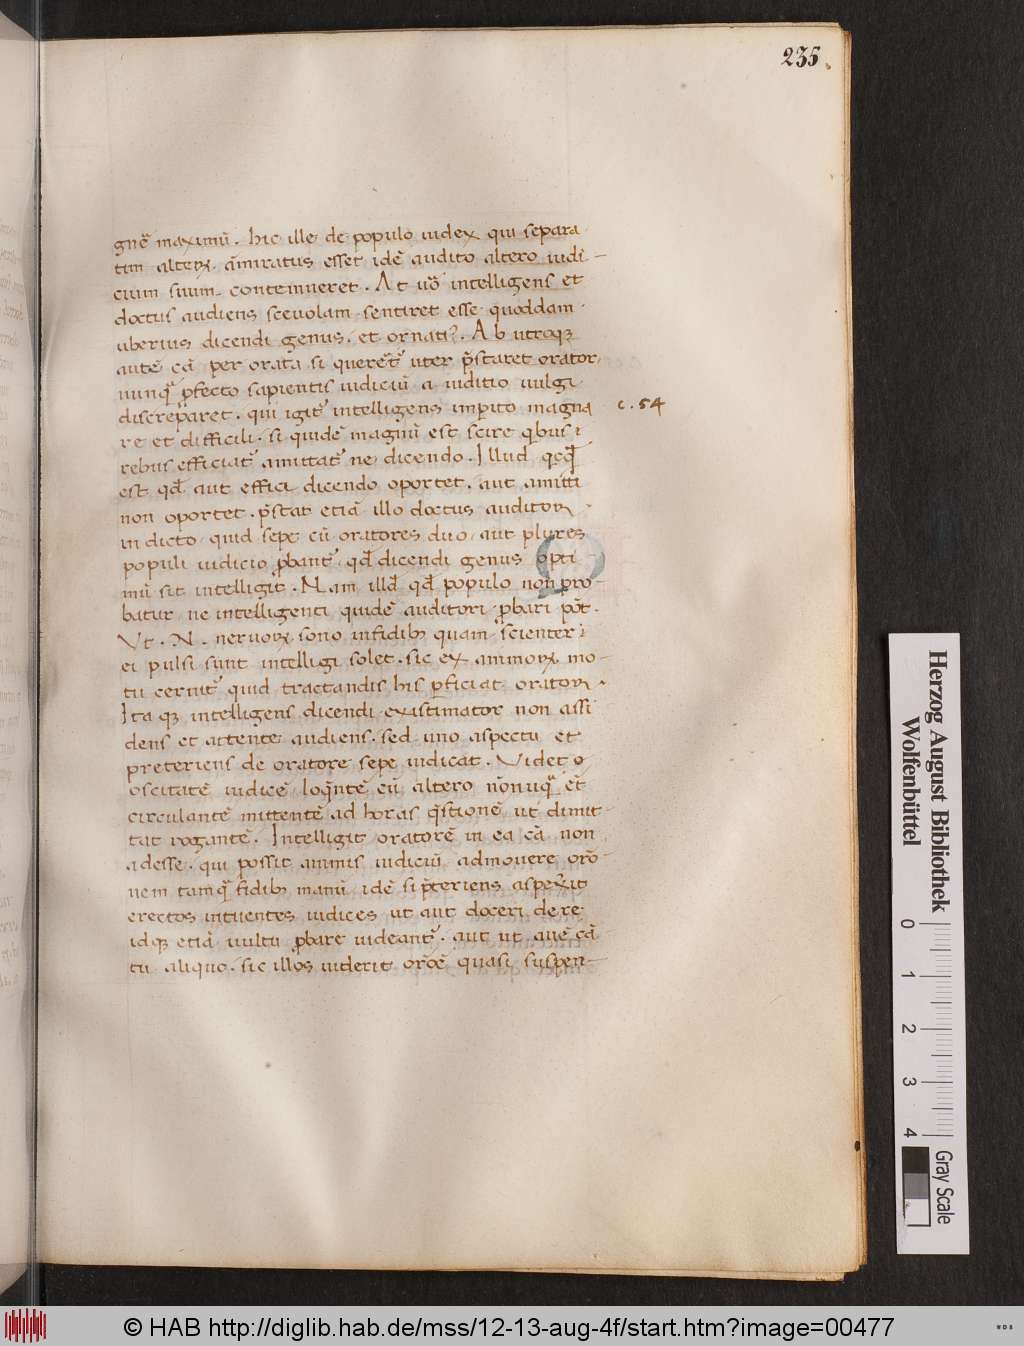 235
gnū maximū. hic ille de populo iudex qui separa
tim alteroꝝ amiratus esset idē audito altero iudi-
cium suum contemneret. At uō intelligens et
doctus audiens sceuolam sentiret esse quoddam
uberius dicendi genus. et ornatiꝰ. Ab utroqꝫ
autē cā per orata si quereret᷑ uter p̄staret orator
nunq̄ ꝓfecto sapientis iudiciū a iuditio uulgi
discreparet. qui igit᷑ intelligens imꝑito magna
re et difficili. si quidē magnū est scire qibus i
rebus efficiat᷑ amittat᷑ ne dicendo. Illud qcqd̄
est qd̄ aut effici dicendo oportet. aut amitti
non oportet. p̄stat etiā illo doctus auditoꝝ
in dicto quid sepe cū oratores duo aut plures
populi iudicio ꝓbant᷑ qd̄ dicendi genus opti
mū sit intelligit. Nam illd̄ qd̄ populo non pro-
batur ne intelligenti quidē auditori ꝓbari pōt.
Vt. N. neruoꝝ sono in fidibꝫ quam scienter i
ei pulsi sunt intelligi solet. sic ex animoꝝ mo-
tu cernit᷑ quid tractandis his ꝑficiat oratoꝝ.
Ita qꝫ intelligens dicendi existimator non assi
dens et attente audiens. sed uno aspectu et
preteriens de oratore sepe iudicat. Videt o
oscitatē iudicē loq̄ntē cū altero nōnuq̄ et̄
circulantē mittentē ad horas q̄stionē ut dimit-
tat rogantē. Intelligit oratorē in ea cā non
adesse. qui possit animis iudiciū admouere orō
nem tamq̄ fidibꝫ manū idē si p̄teriens aspexit
erectos intuentes iudices ut aut doceri de re
idqꝫ etiā uultu ꝓbare uideant᷑. aut ut auē cā
tu aliquo. sic illos uiderit orōē quasi suspen-
c. 54
Herzog August Bibliothek
Wolfenbüttel
0 1 2 3 4
Gray Scale
© HAB http://diglib.hab.de/mss/12-13-aug-4f/start.htm?image=00477